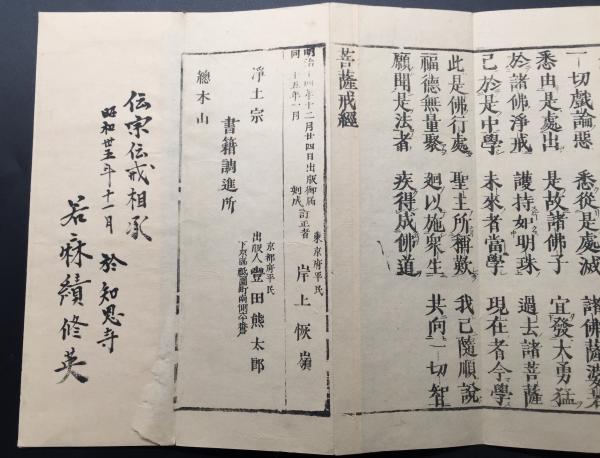 一切戲論惡　悉從是處滅　諸佛薩婆若
悉由是處出　是故諸佛子　宜發大勇猛
於諸佛淨戒　護持如明珠　過去諸菩薩
已於是中學　未來者當學　現在者今學
此是佛行處　聖主所稱歎　我已隨順說
福德無量聚　廻以施衆生　共向一切智
願聞是法者　疾得成佛道
菩薩戒經
明治十四年十二月廿四日出版御届
同十五年一月　刻成
訂正者　東京府平民　岸上恢嶺
出版人　京都府平民　豐田熊太郎
下京區祇園町南側
淨土宗　書籍調進所
總本山
伝宗伝戒相承
昭和廿五年十一月　於知恩寺
若麻績修英